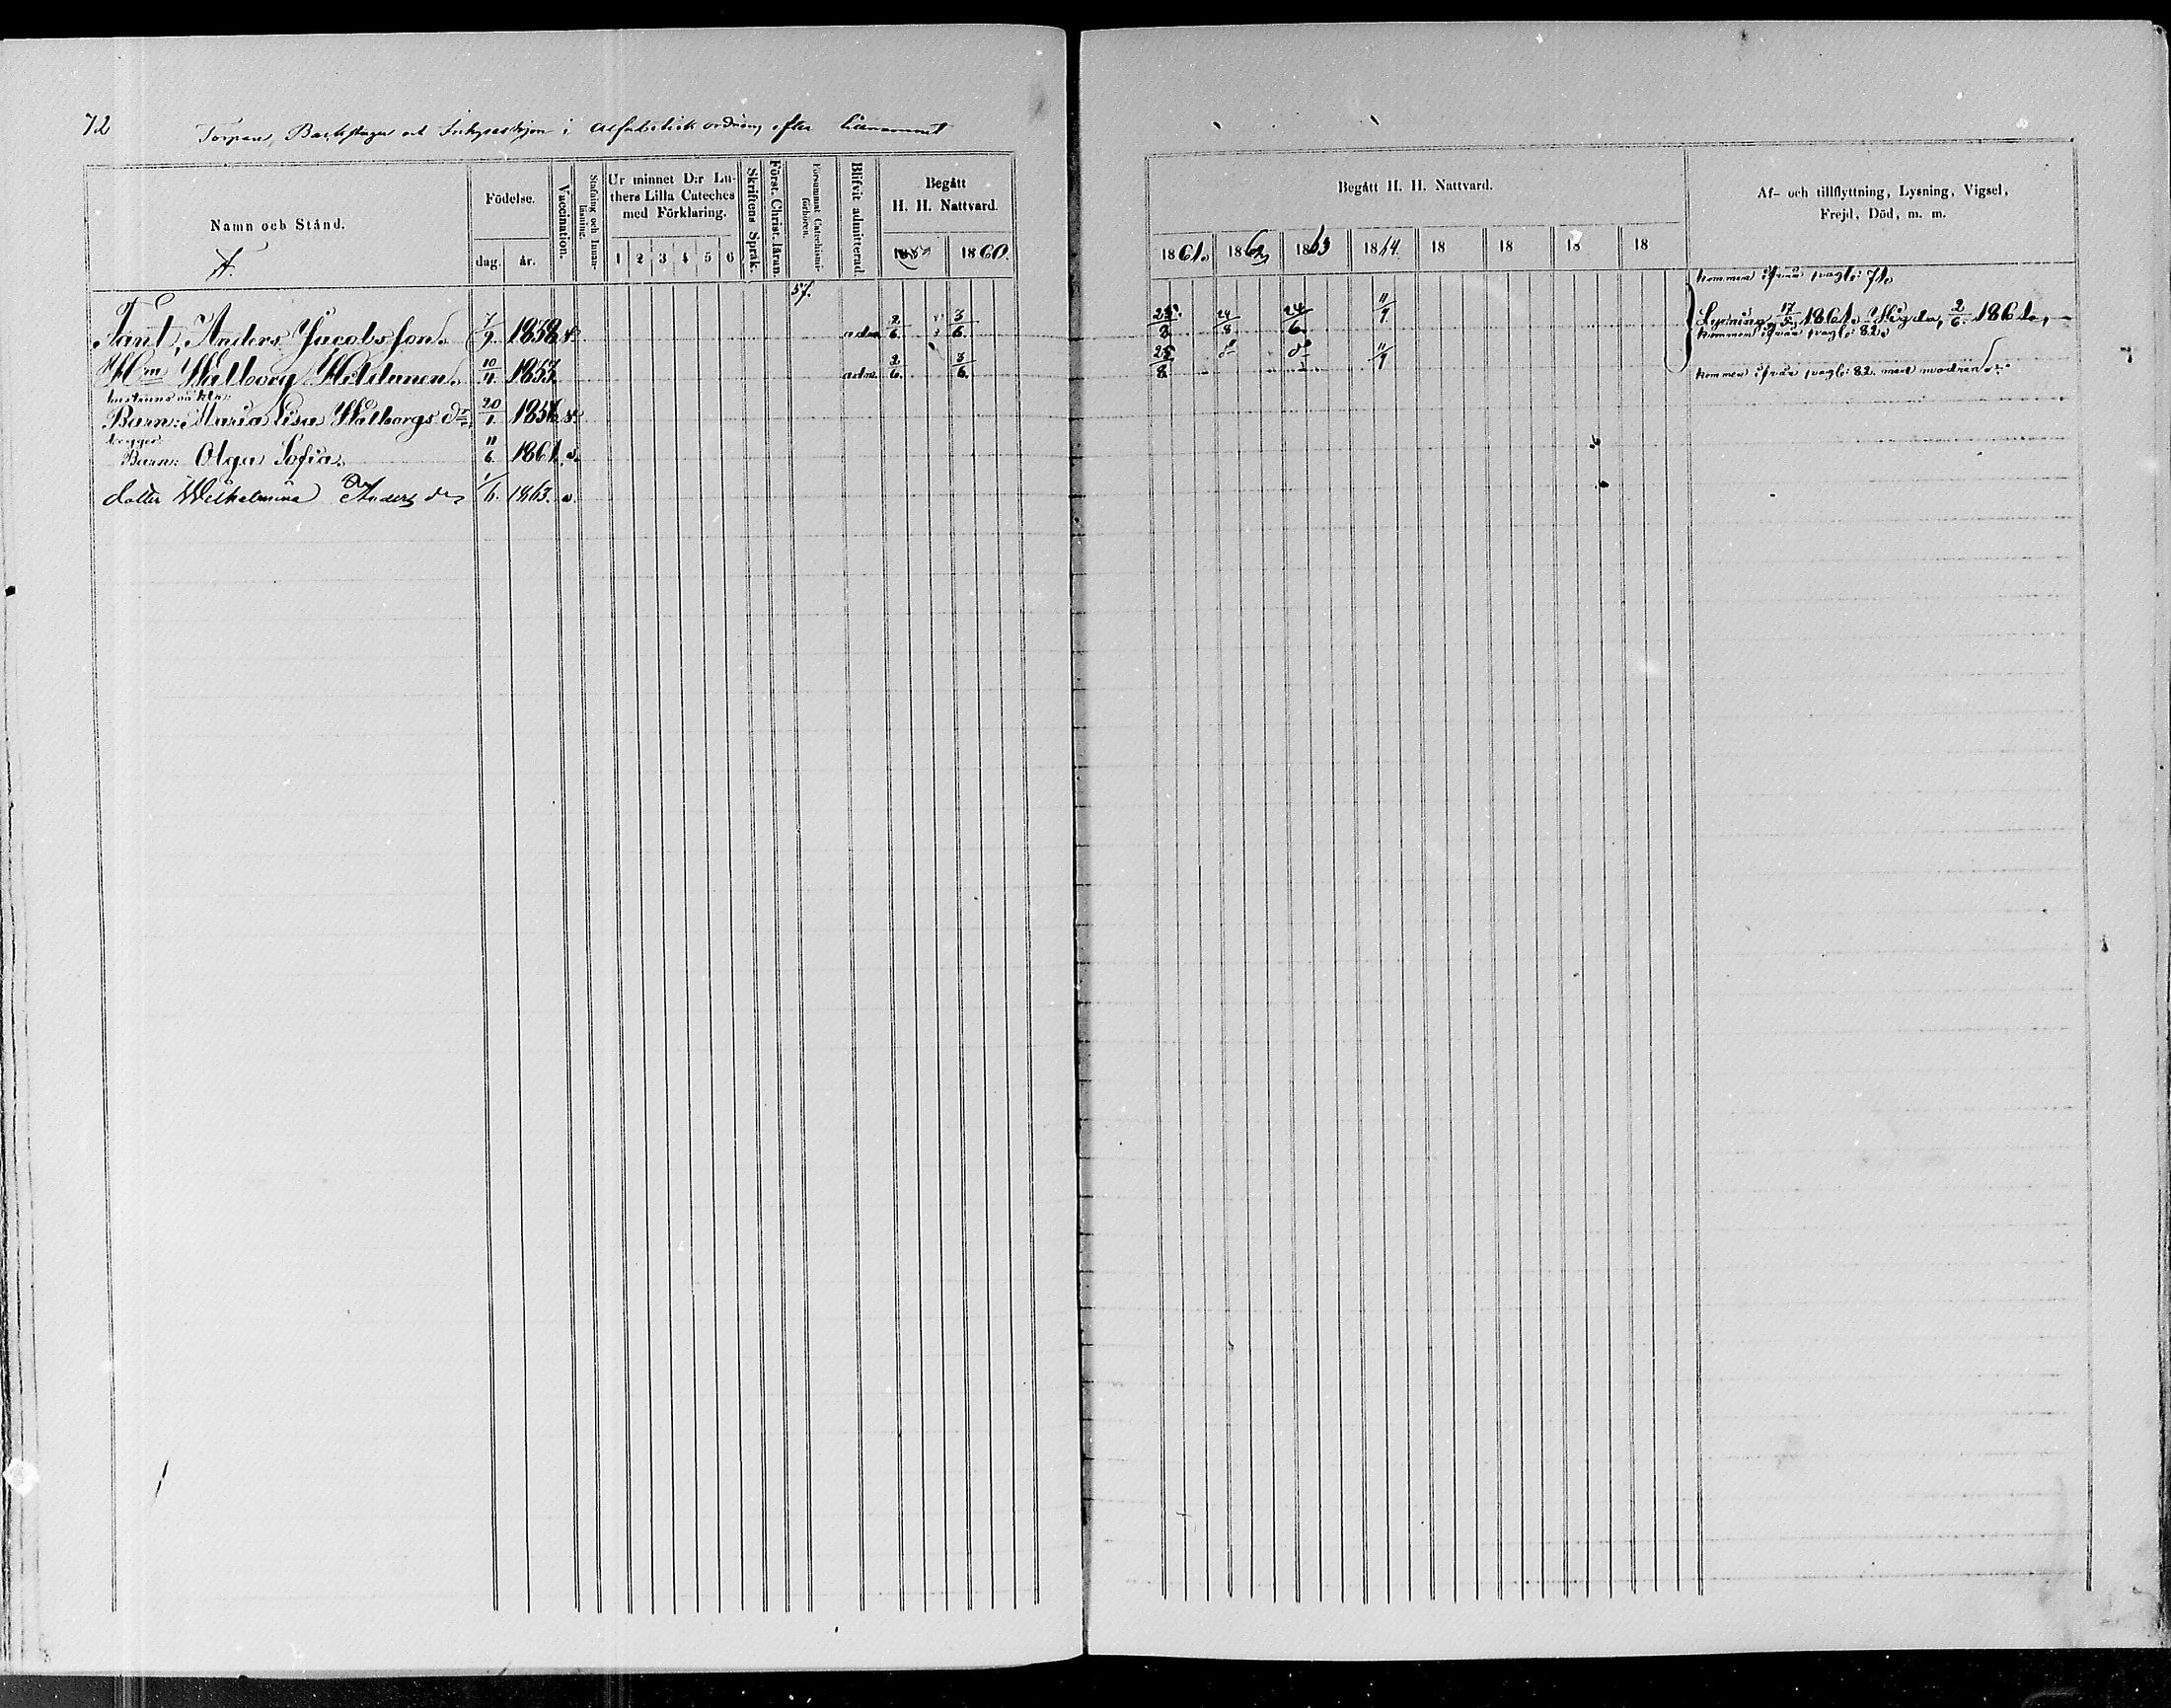 72
Torpare, Backstugu och Inhyseshjon i alfabetisk ordning efter tillnamnet
Namn och Stånd.
Födelse.
dag. år.
Vaccination.
Stafning och Innanläsning.
Ur minnet D:r Luthers Lilla Cateches med Förklaring.
1 2 3 4 5 6
Skriftens Språk.
Först. Christ. läran.
Försummat Catechismiförhören.
Blifvit admitterad.
Begått H. H. Nattvard.
1860.
57.
Begått H. H. Nattvard.
1861. 1862 1863 1864. 18 18 18 18
Af- och tillflyttning, Lysning, Vigsel, Frejd, Död, m. m.
kommen ifrån pag: 71.
Anders Jacobsson. 7/9. 1838. adm. 2/6. 3/6. 24/8 24/6 11/9 Lysning 17/5 1861. Vigde, 2/6. 1861.
kommen ifrån pag: 82.
H:m Walborg 10/11. 1837. adm. 2/6. 3/6. 25/8. d:o d:o 11/9
kommen ifrån pag: 82. med modren
Barn: Maria Lisa Walborgs d:r 20/1. 1857.
Barn: Olga Sofia. 11/6. 1861.
dotter Wilhelmina Anders d:r 1/6. 1863.